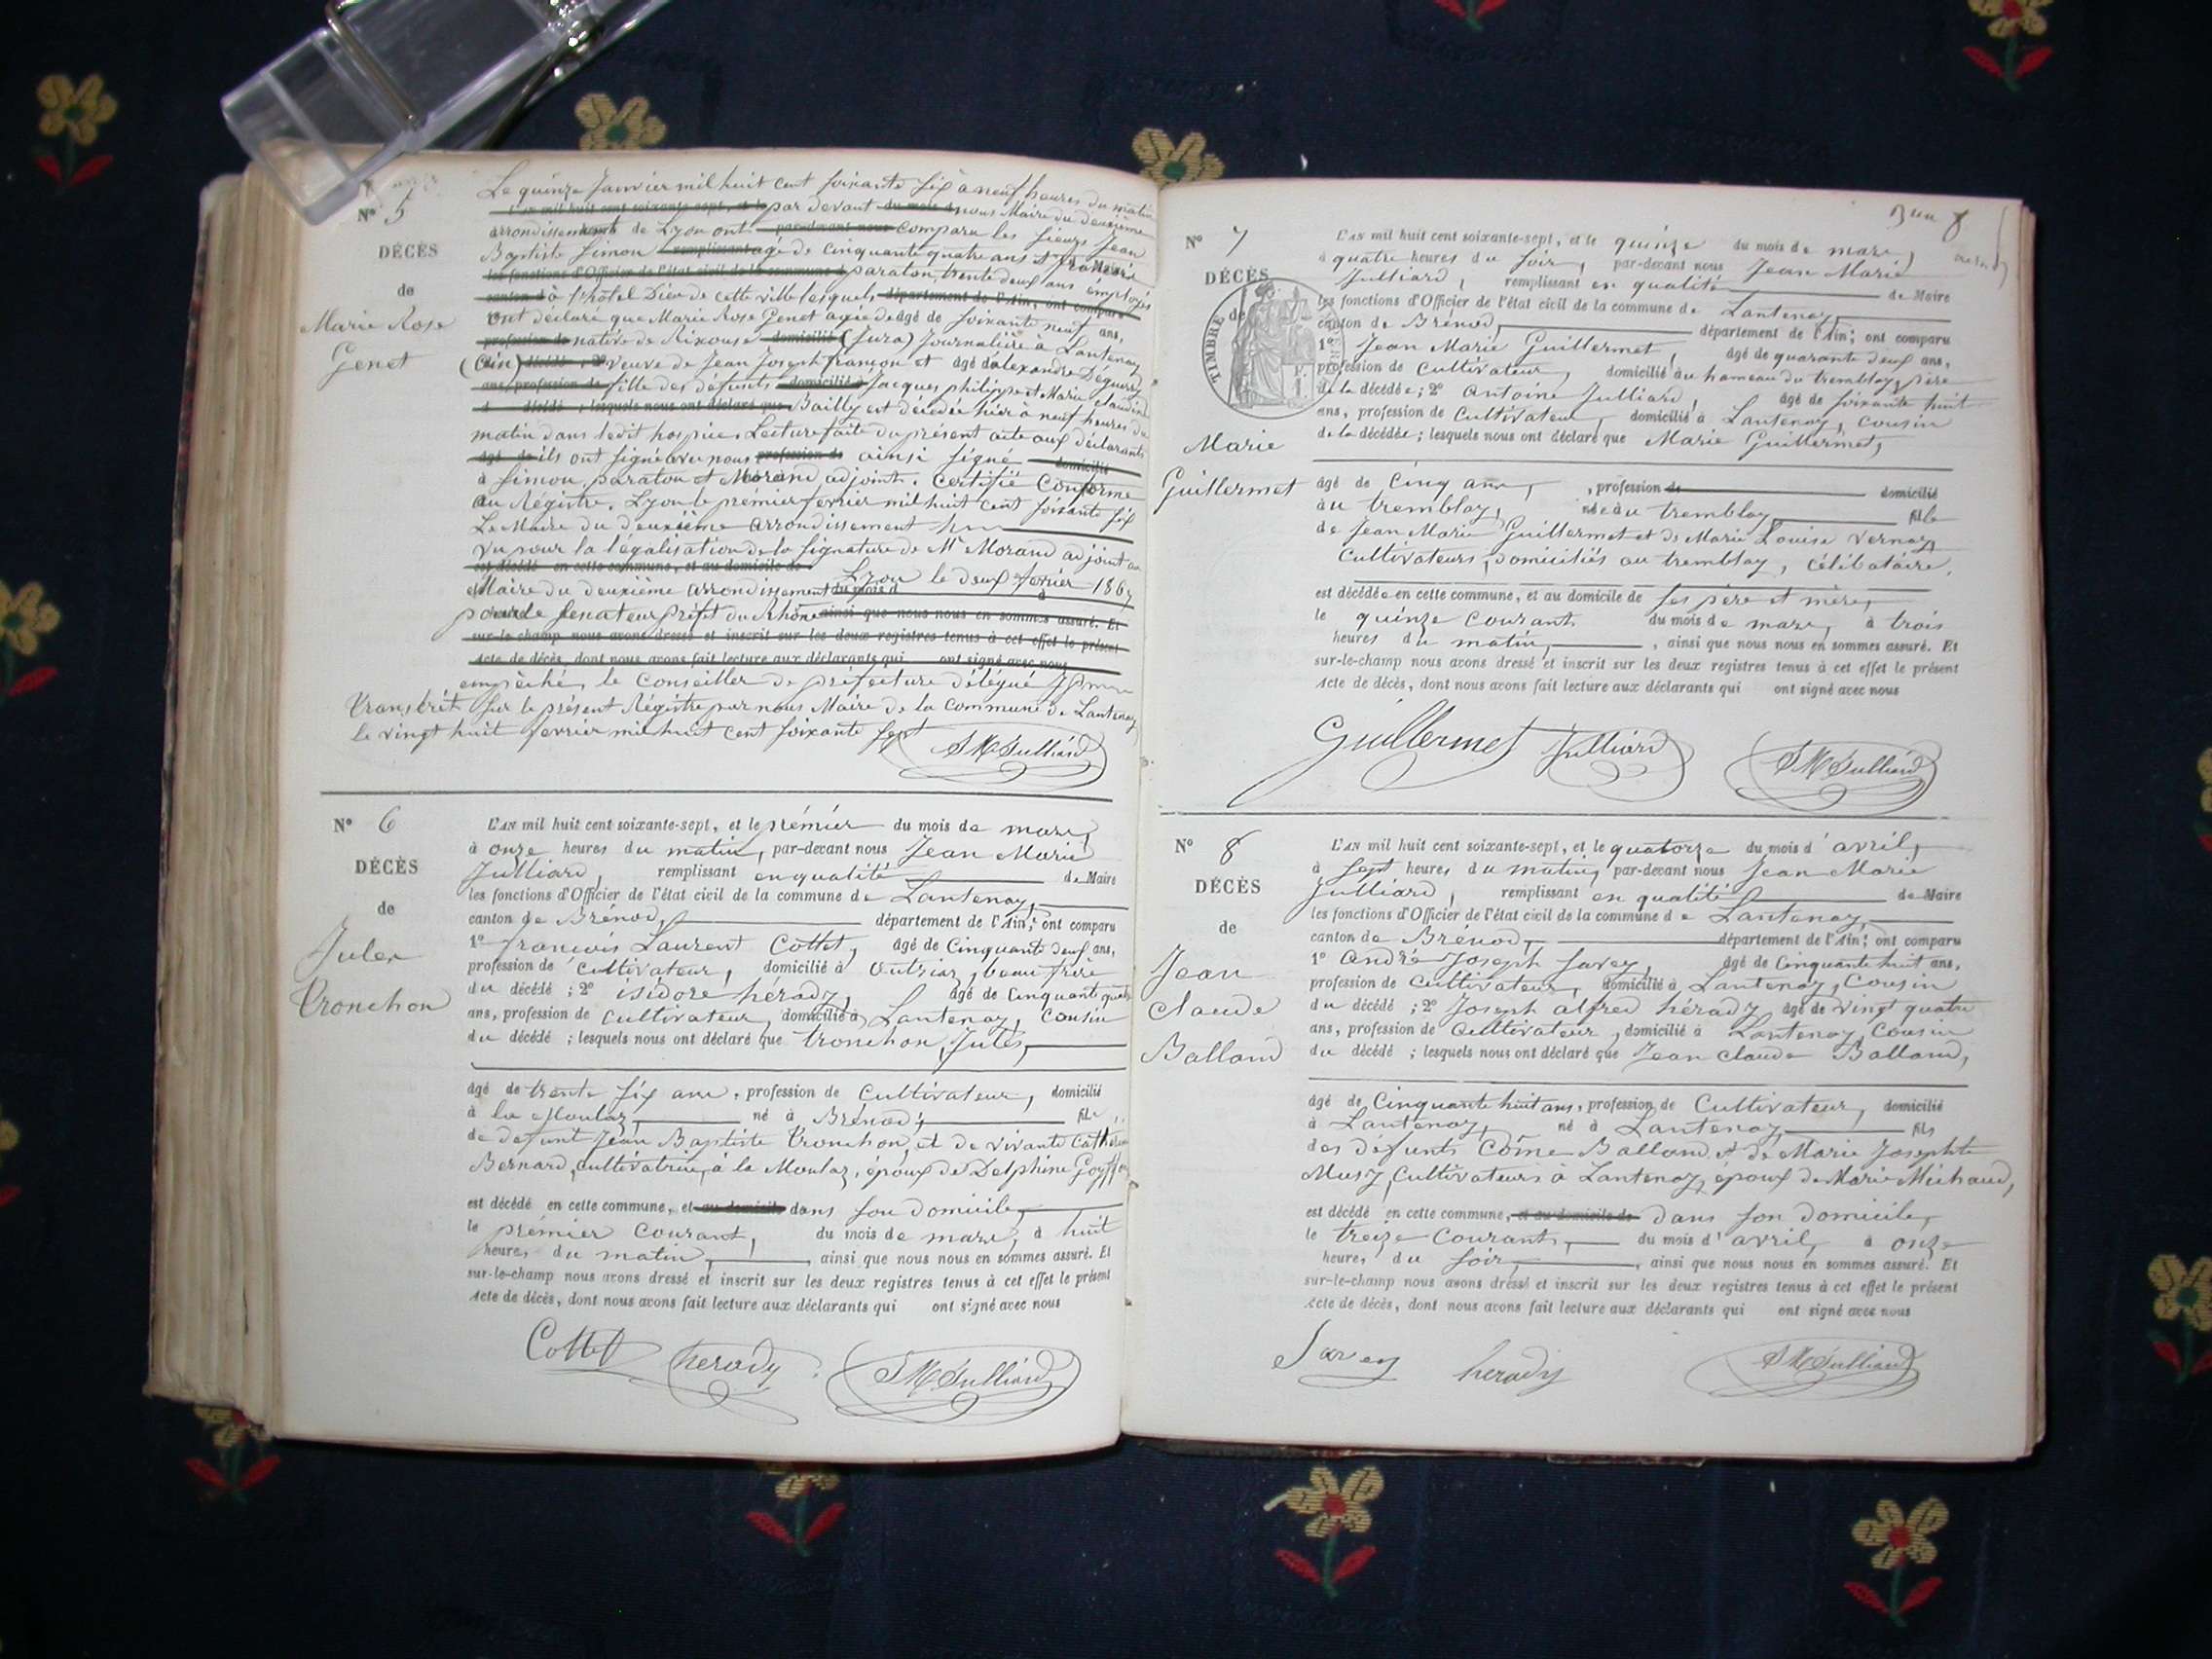 Nº 5
DÉCÈS
de
Marie Rose
Genet
Le quinze Janvier mil huit cent soixante six à neuf heures du matin
L'an mil huit cent soixante-sept, et le par devant du mois d nous Maire du deuxième
arrondissement de Lyon ont par-devant nous comparu les sieurs Jean
Baptiste Simon remplissant agé de cinquante quatre ans
les fonctions d'Officier de l'état civil de la commune d paraton, trente deux ans employés
canton d à l'hôtel Dieu de cette ville lesquels département de l'Ain, ont comparu
ont déclaré que Marie Rose Genet agée de âgé de soixante neuf ans,
profession de native de Rixouse domicilié (Jura) Journalière à Lantenay
(Ain) décédé ; 2º veuve de Jean Joseph françon et âgé d'alexandre
ans, profession de fille des défunts domicilié à Jacques philippe et Marie claudine
d décédé ; lesquels nous ont déclaré que Bailly est décédée hier à neuf heures du
matin dans ledit hospice. Lecture faite du présent acte aux déclarants
âgé de ils ont signé avec nous profession de ainsi signé domicilié
à Simon, paraton et Morand adjoint. Certifié Conforme
au Régistre. Lyon le prémier fevrier mil huit cent soixante six
Le Maire du deuxième arrondissement
Vu pour la légalisation de la signature de Mr Morand adjoint au
est décédé en cette commune, et au domicile de Lyon le deux fevrier 1867
Maire du deuxième arrondissement du mois d à
pour le senateur préfet du Rhône ainsi que nous nous en sommes assuré. Et
sur-le-champ nous avons dressé et inscrit sur les deux registres tenus à cet effet le présent
Acte de décès, dont nous avons fait lecture aux déclarants qui ont signé avec nous
empêché, le Conseiller de préfecture délégué
Transcrit sur le présent Régistre par nous Maire de la commune de Lantenay
le vingt huit fevrier mil huit cent soixante sept
JM Julliard
Nº 6
DÉCÈS
de
Jules
Tronchon
L'AN mil huit cent soixante-sept, et le prémier du mois de mars,
à onze heures du matin, par-devant nous Jean Marie
Julliard, remplissant en qualité de Maire
les fonctions d'Officier de l'état civil de la commune de Lantenay,
canton de Brénod, département de l'Ain; ont comparu
1º françois Laurent Cottet, âgé de Cinquante deux ans,
profession de cultivateur, domicilié à outriaz, beau frère
du décédé ; 2º isidore hérady, âgé de Cinquante quatre
ans, profession de cultivateur, domicilié à Lantenay, cousin
du décédé ; lesquels nous ont déclaré que tronchon, Jules,
âgé de trente six ans, profession de Cultivateur, domicilié
à la Moulaz, né à Brénod, fils
de defunt Jean Baptiste Tronchon, et de vivante Cathérine
Bernard, cultivatrice, à la Moulaz, époux de Delphine
est décédé en cette commune, et au domicile dans son domicile,
le prémier courant, du mois de mars, à huit
heures du matin, ainsi que nous nous en sommes assuré. Et
sur-le-champ nous avons dressé et inscrit sur les deux registres tenus à cet effet le présent
Acte de décès, dont nous avons fait lecture aux déclarants qui ont signé avec nous
Cottet herady JM Julliard
8
Nº 7
DÉCÈS
de
TIMBRE
Marie
Guillermet
L'AN mil huit cent soixante-sept, et le quinze du mois de mars,
à quatre heures du soir, par-devant nous Jean Marie
Julliard, remplissant en qualité de Maire
les fonctions d'Officier de l'état civil de la commune de Lantenay,
canton de Brénod, département de l'Ain; ont comparu
1º Jean Marie Guillermet, âgé de quarante deux ans,
profession de cultivateur, domicilié au hameau du tremblay, père
de la décédée; 2º antoine Julliard, âgé de soixante huit
ans, profession de Cultivateur, domicilié à Lantenay, cousin
de la décédée; lesquels nous ont déclaré que Marie Guillermet,
âgé de Cinq ans, , profession de domicilié
au tremblay, née au tremblay, fille
de Jean Marie Guillermet et de Marie Louise Vernay
Cultivateurs, domiciliés au tremblay, célibataire.
est décédée en cette commune, et au domicile de ses père et mère,
le quinze courant du mois de mars, à trois
heures du matin, , ainsi que nous nous en sommes assuré. Et
sur-le-champ nous avons dressé et inscrit sur les deux registres tenus à cet effet le présent
Acte de décès, dont nous avons fait lecture aux déclarants qui ont signé avec nous
Guillermet Julliard JM Julliard
Nº 8
DÉCÈS
de
Jean
claude
Balland
L'AN mil huit cent soixante-sept, et le quatorze du mois d'avril,
à sept heures du matin, par-devant nous Jean Marie
Julliard, remplissant en qualité de Maire
les fonctions d'Officier de l'état civil de la commune de Lantenay,
canton de Brénod, département de l'Ain; ont comparu
1º andré Joseph Savey, âgé de Cinquante huit ans,
profession de Cultivateur, domicilié à Lantenay, Cousin
du décédé ; 2º Joseph alfred hérady âgé de vingt quatre
ans, profession de Cultivateur, domicilié à Lantenay, Cousin
du décédé ; lesquels nous ont déclaré que Jean claude Balland,
âgé de Cinquante huit ans, profession de Cultivateur, domicilié
à Lantenay, né à Lantenay, fils
des défunts Côme Balland, et de Marie Josephte
Musy, Cultivateurs à Lantenay, époux de Marie Michaud,
est décédé en cette commune, et au domicile de dans son domicile,
le treize Courant, du mois d'avril, à onze
heures du soir, , ainsi que nous nous en sommes assuré. Et
sur-le-champ nous avons dressé et inscrit sur les deux registres tenus à cet effet le présent
Acte de décès, dont nous avons fait lecture aux déclarants qui ont signé avec nous
Savey herady JM Julliard